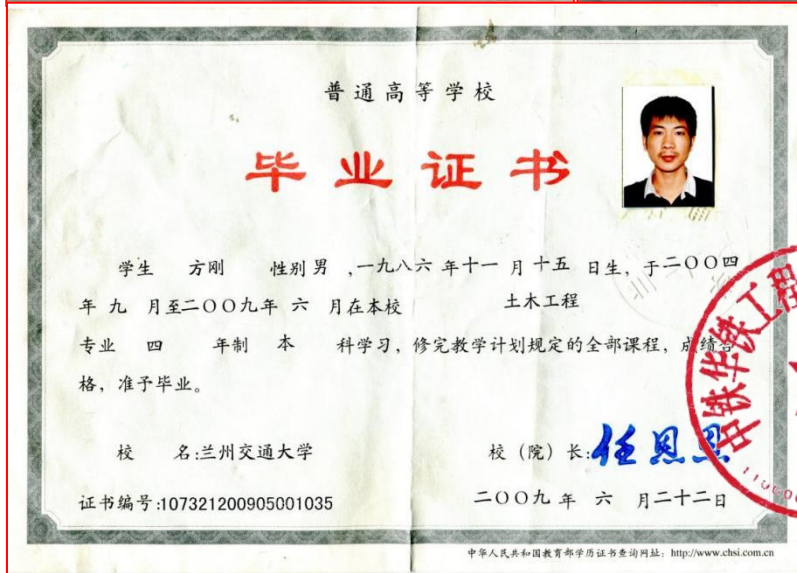 普通高等学校
毕业证书
学生 方刚 性别 男 ,一九八六 年十一 月 十五 日生, 于二〇〇四
年 九 月至二〇〇九年 六 月在本校 土木工程
专业 四 年制 本 科学习, 修完教学计划规定的全部课程, 成绩合
格, 准予毕业。
校 名:兰州交通大学 校 (院) 长:任恩恩
证书编号:107321200905001035 二〇〇九 年 六 月二十二日
中华人民共和国教育部学历证书查询网址: http://www.chsi.com.cn
中铁华铁工程